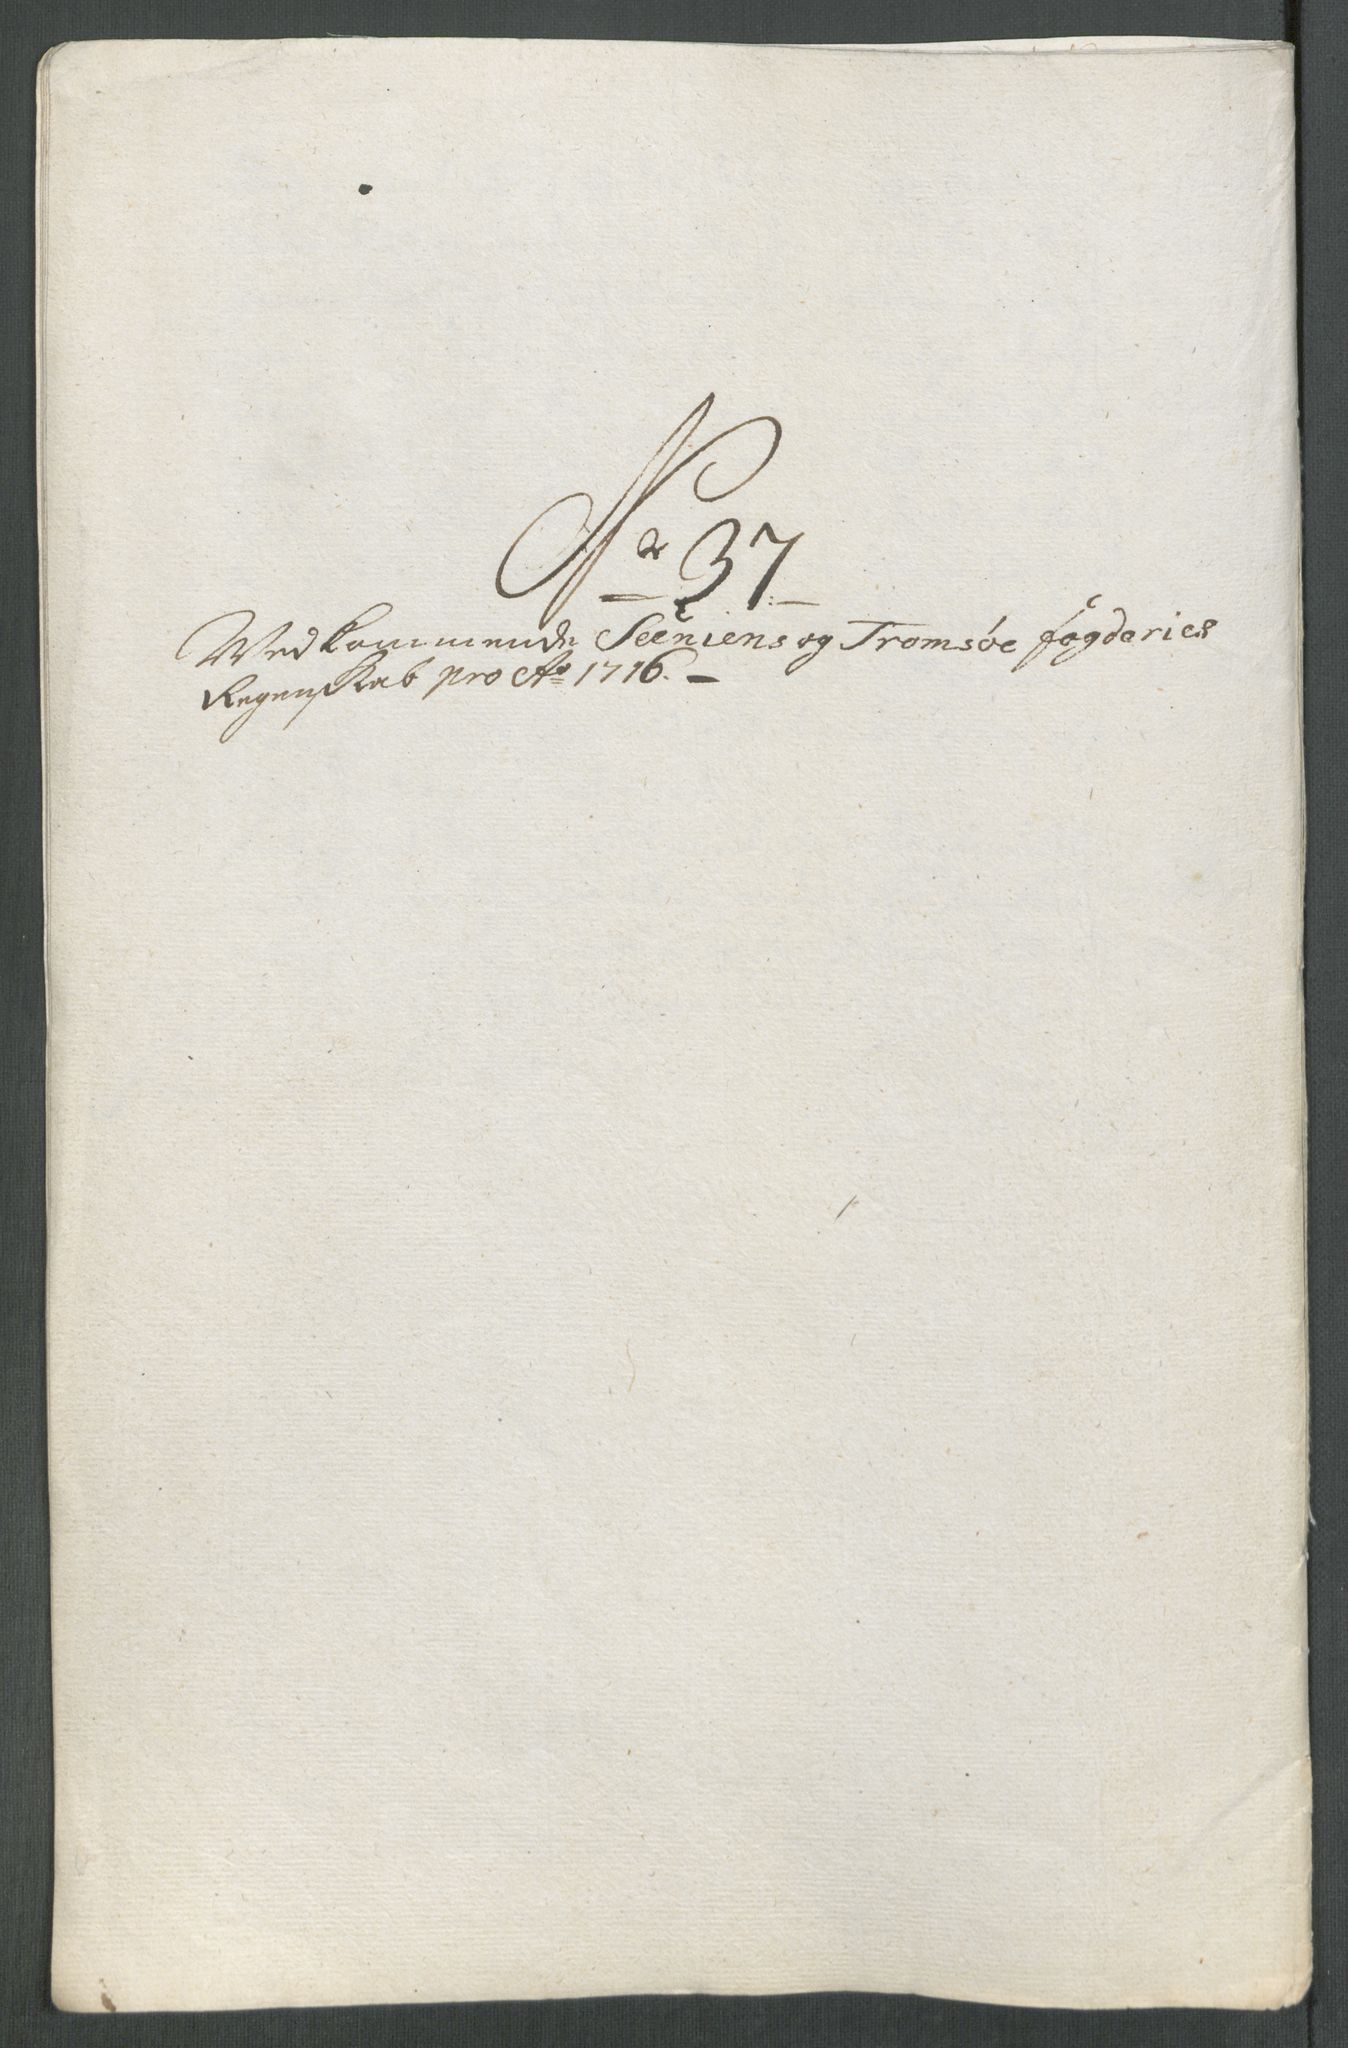 No 37
Wedkommende Seeniens og Tromsøe fogderies
Regenskab pro Ao 1716.